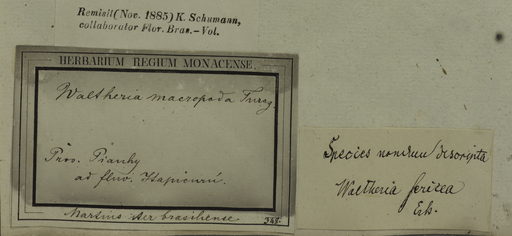 Remisit (Nov. 1885) K. Schumann,
collaborator Flor. Bras. – Vol.
HERBARIUM REGIUM MONACENSE.
Waltheria macropoda Turcz
Prov. Piauhy
ad fluv. Itapicurú.
Martius Iter brasiliense
Species nondum descripta
Waltheria sericea